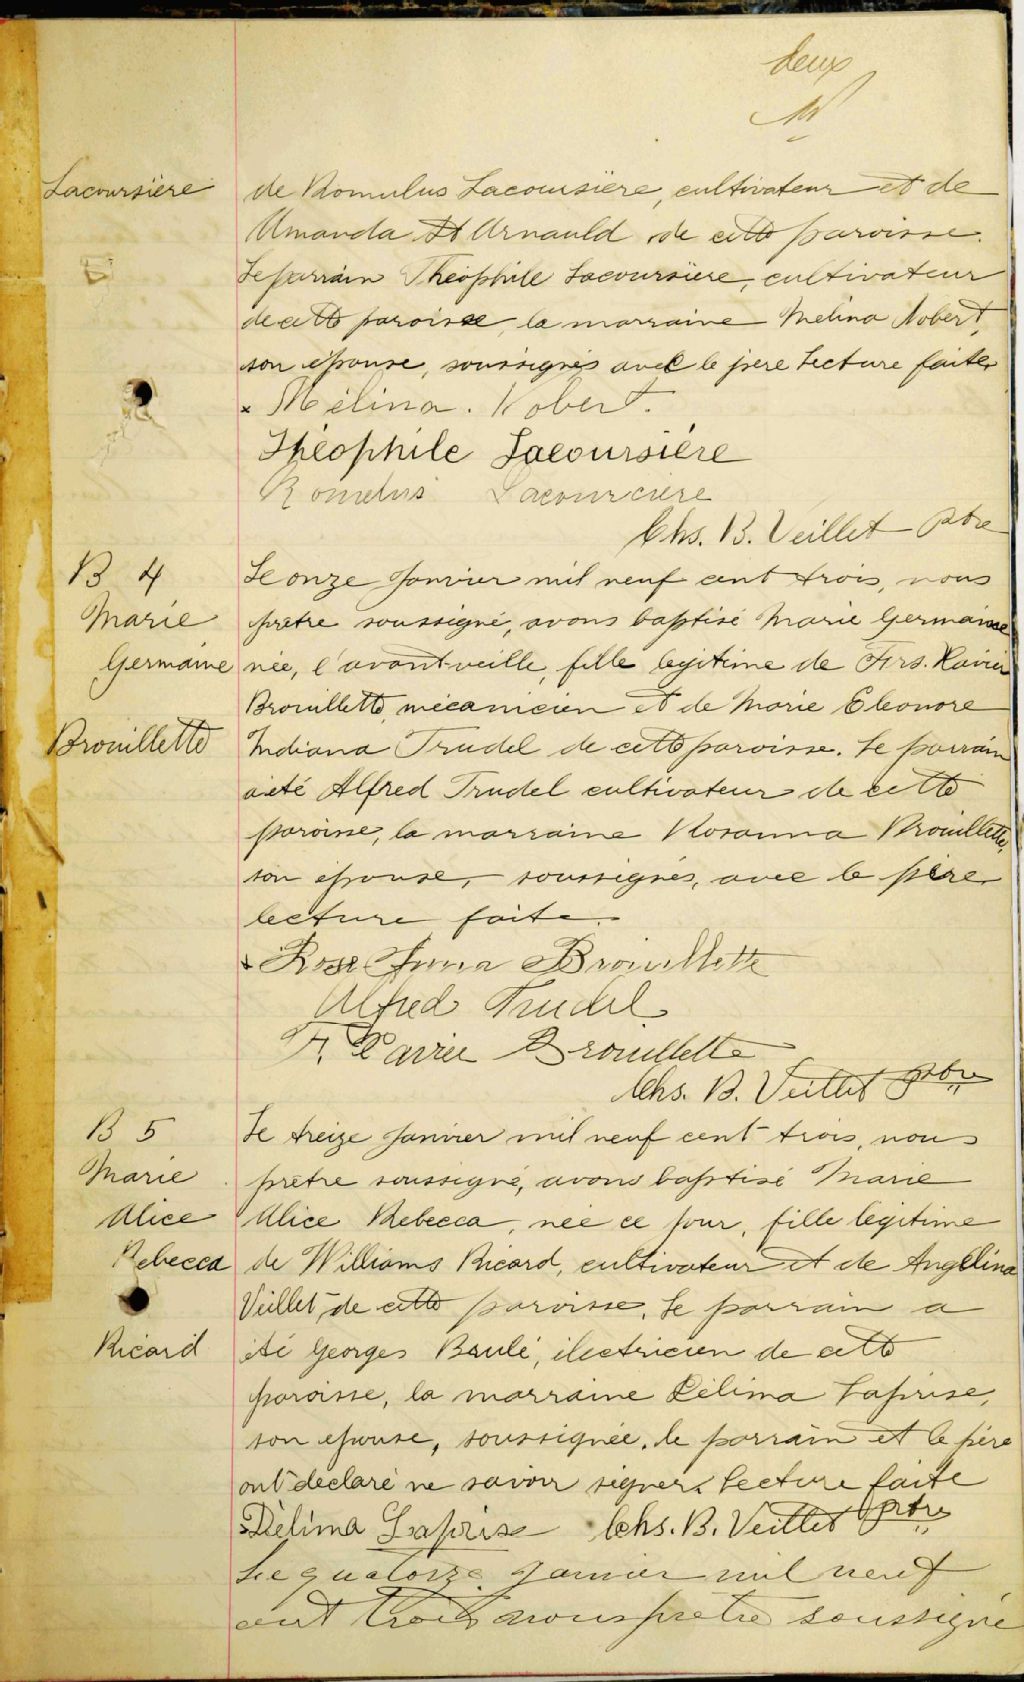 deux
Lacoursière
de Romulus Lacoursière, cultivateur et de
Amanda St Arnauld de cette paroisse.
Le parrain Théophile Lacoursière, cultivateur
de cette paroisse, la marraine Mélina Nobert,
son épouse, soussignés avec le père Lecture faite.
x Mélina. Nobert.
Théophile Lacoursière
Romulus Lacourciere
Chs. B. Veillet Ptre
B 4
Marie
Germaine
Brouillette
Le onze Janvier mil neuf cent trois, nous
prêtre soussigné, avons baptisé Marie Germaine
née, l'avant-veille, fille legitime de Frs. Xavier
Brouillette, mécanicien et de Marie Eleonore
Indiana Trudel de cette paroisse. Le parrain
a été Alfred Trudel cultivateur de cette
paroisse, la marraine Rosanna Brouillette,
son épouse, soussignés, avec le père
lecture faite.
x Rose Anna Brouillette
Alfred Trudel
F. Xavier Brouillette
Chs. B. Veillet Ptre
B 5
Marie
Alice
Rebecca
Ricard
Le treize Janvier mil neuf cent trois, nous
prêtre soussigné, avons baptisé Marie
Alice Rebecca, née ce jour, fille legitime
de Williams Ricard, cultivateur et de Angelina
Veillet de cette paroisse. Le parrain a
été Georges Baulé, électricien de cette
paroisse, la marraine Délima Laprise,
son épouse, soussignée, le parrain et le père
ont déclaré ne savoir signer. Lecture faite
x Délima Laprise Chs. B. Veillet Ptre
Le quatorze Janvier mil neuf
cent trois nous pretre soussigné